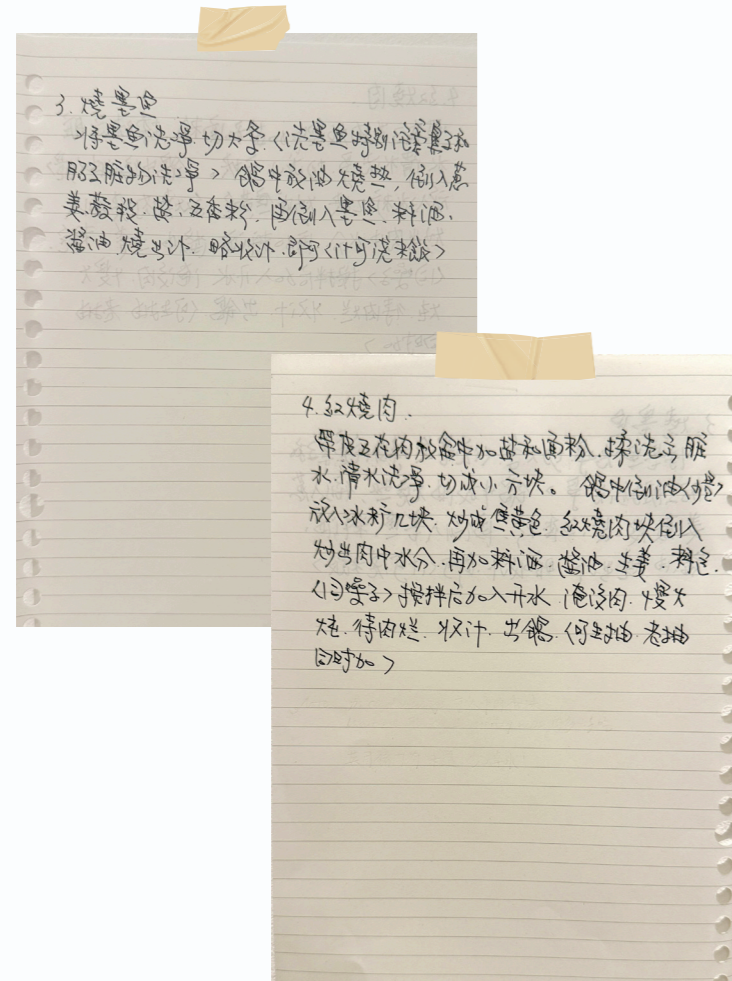 3. 燒墨魚
将墨魚洗淨.切大条〈洗墨魚特别注意 和
脏物洗淨〉鍋中放油燒热,倒入蔥
姜.盐.五香粉.再倒入墨魚.料酒.
醬油.燒出汁.略收汁.即可〈汁可浇米飯〉
4. 红燒肉.
带皮五花肉放盆中加盐和面粉.揉洗 脏
水.清水洗淨.切成小方块。鍋中倒油〈少〉
放入冰糖几块.炒成 黄色.红燒肉块倒入
炒出肉中水分.再加料酒.醬油.生姜.料包.
〈同 子〉搅拌后加入开水.淹没肉.慢火
炖.待肉烂.收汁.出鍋.〈可生抽.老抽
同时加〉